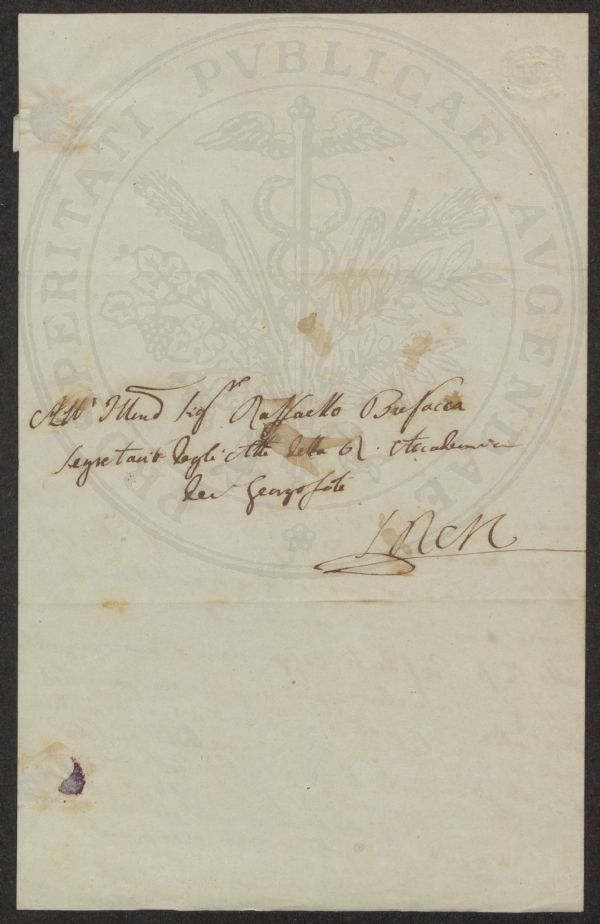 PROSPERITATI PVBLICAE AVGENDAE
All' Illmo Sigre Raffaello Busacca
Segretario degli Atti della R. Accademia
dei Georgofili